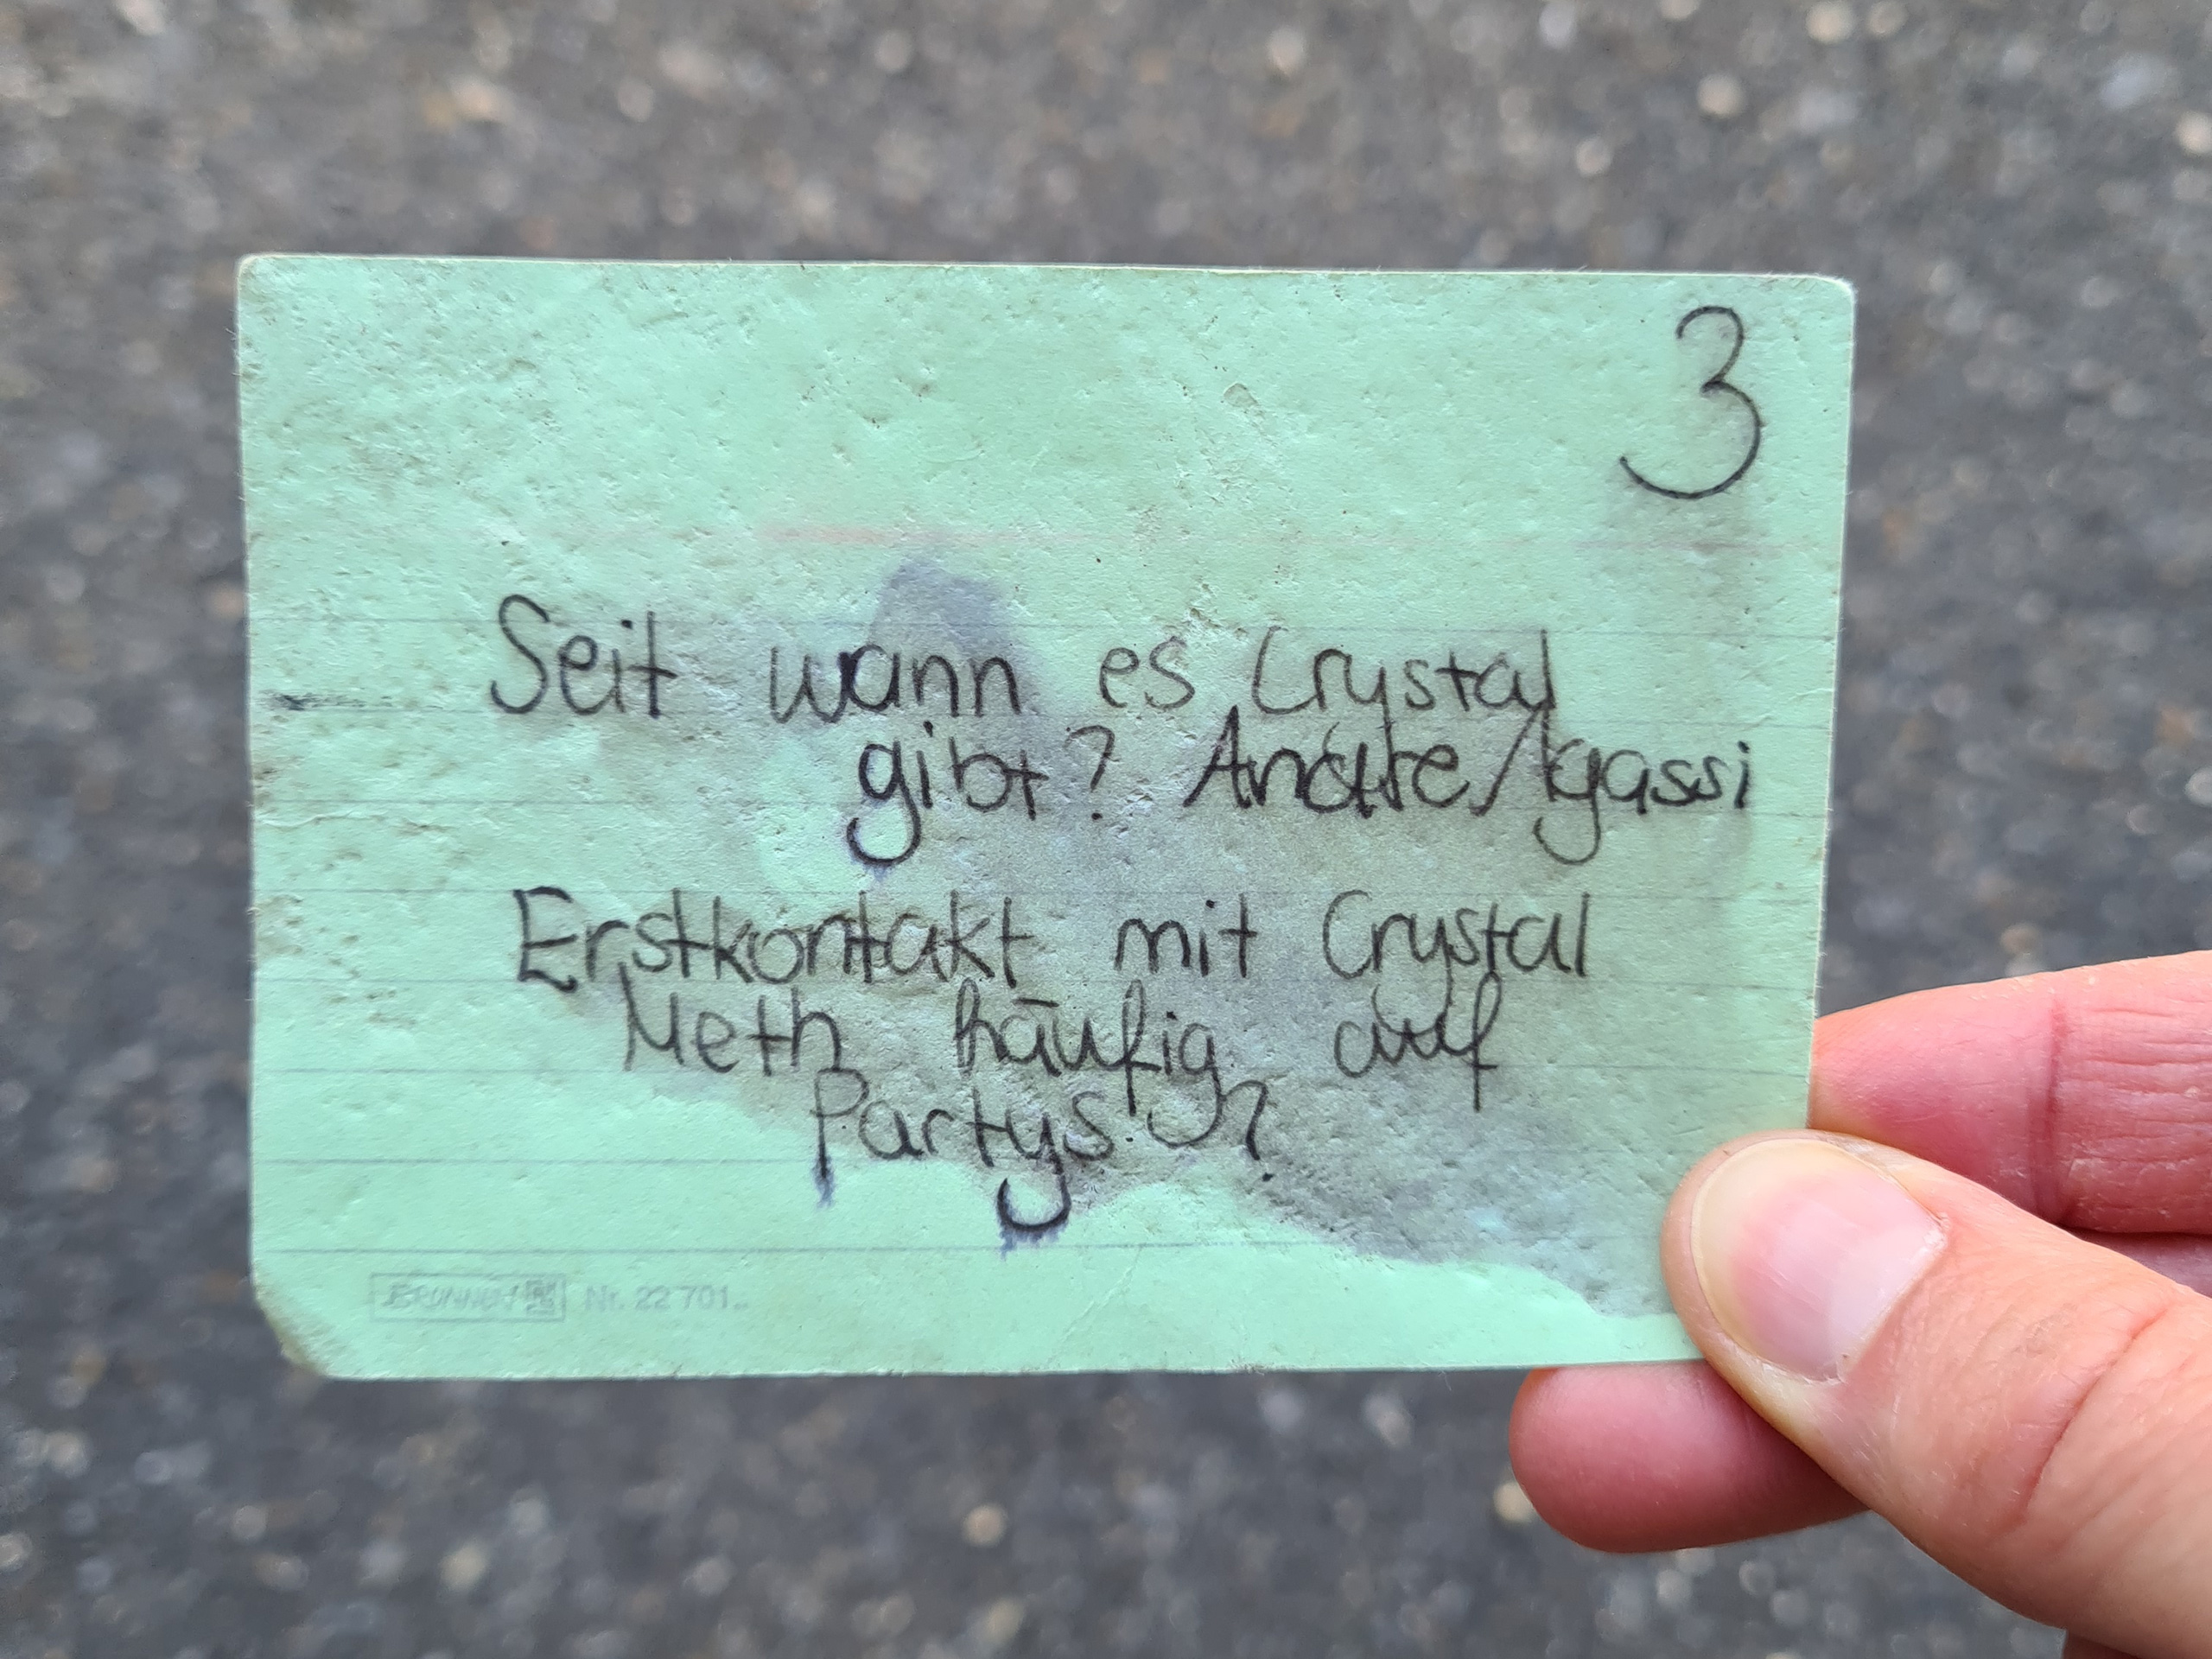 3
Seit wann es Crystal
gibt? Andre/Agassi
Erstkontakt mit Crystal
Meth häufig auf
Partys?
BRUNNEN Nr. 22 701